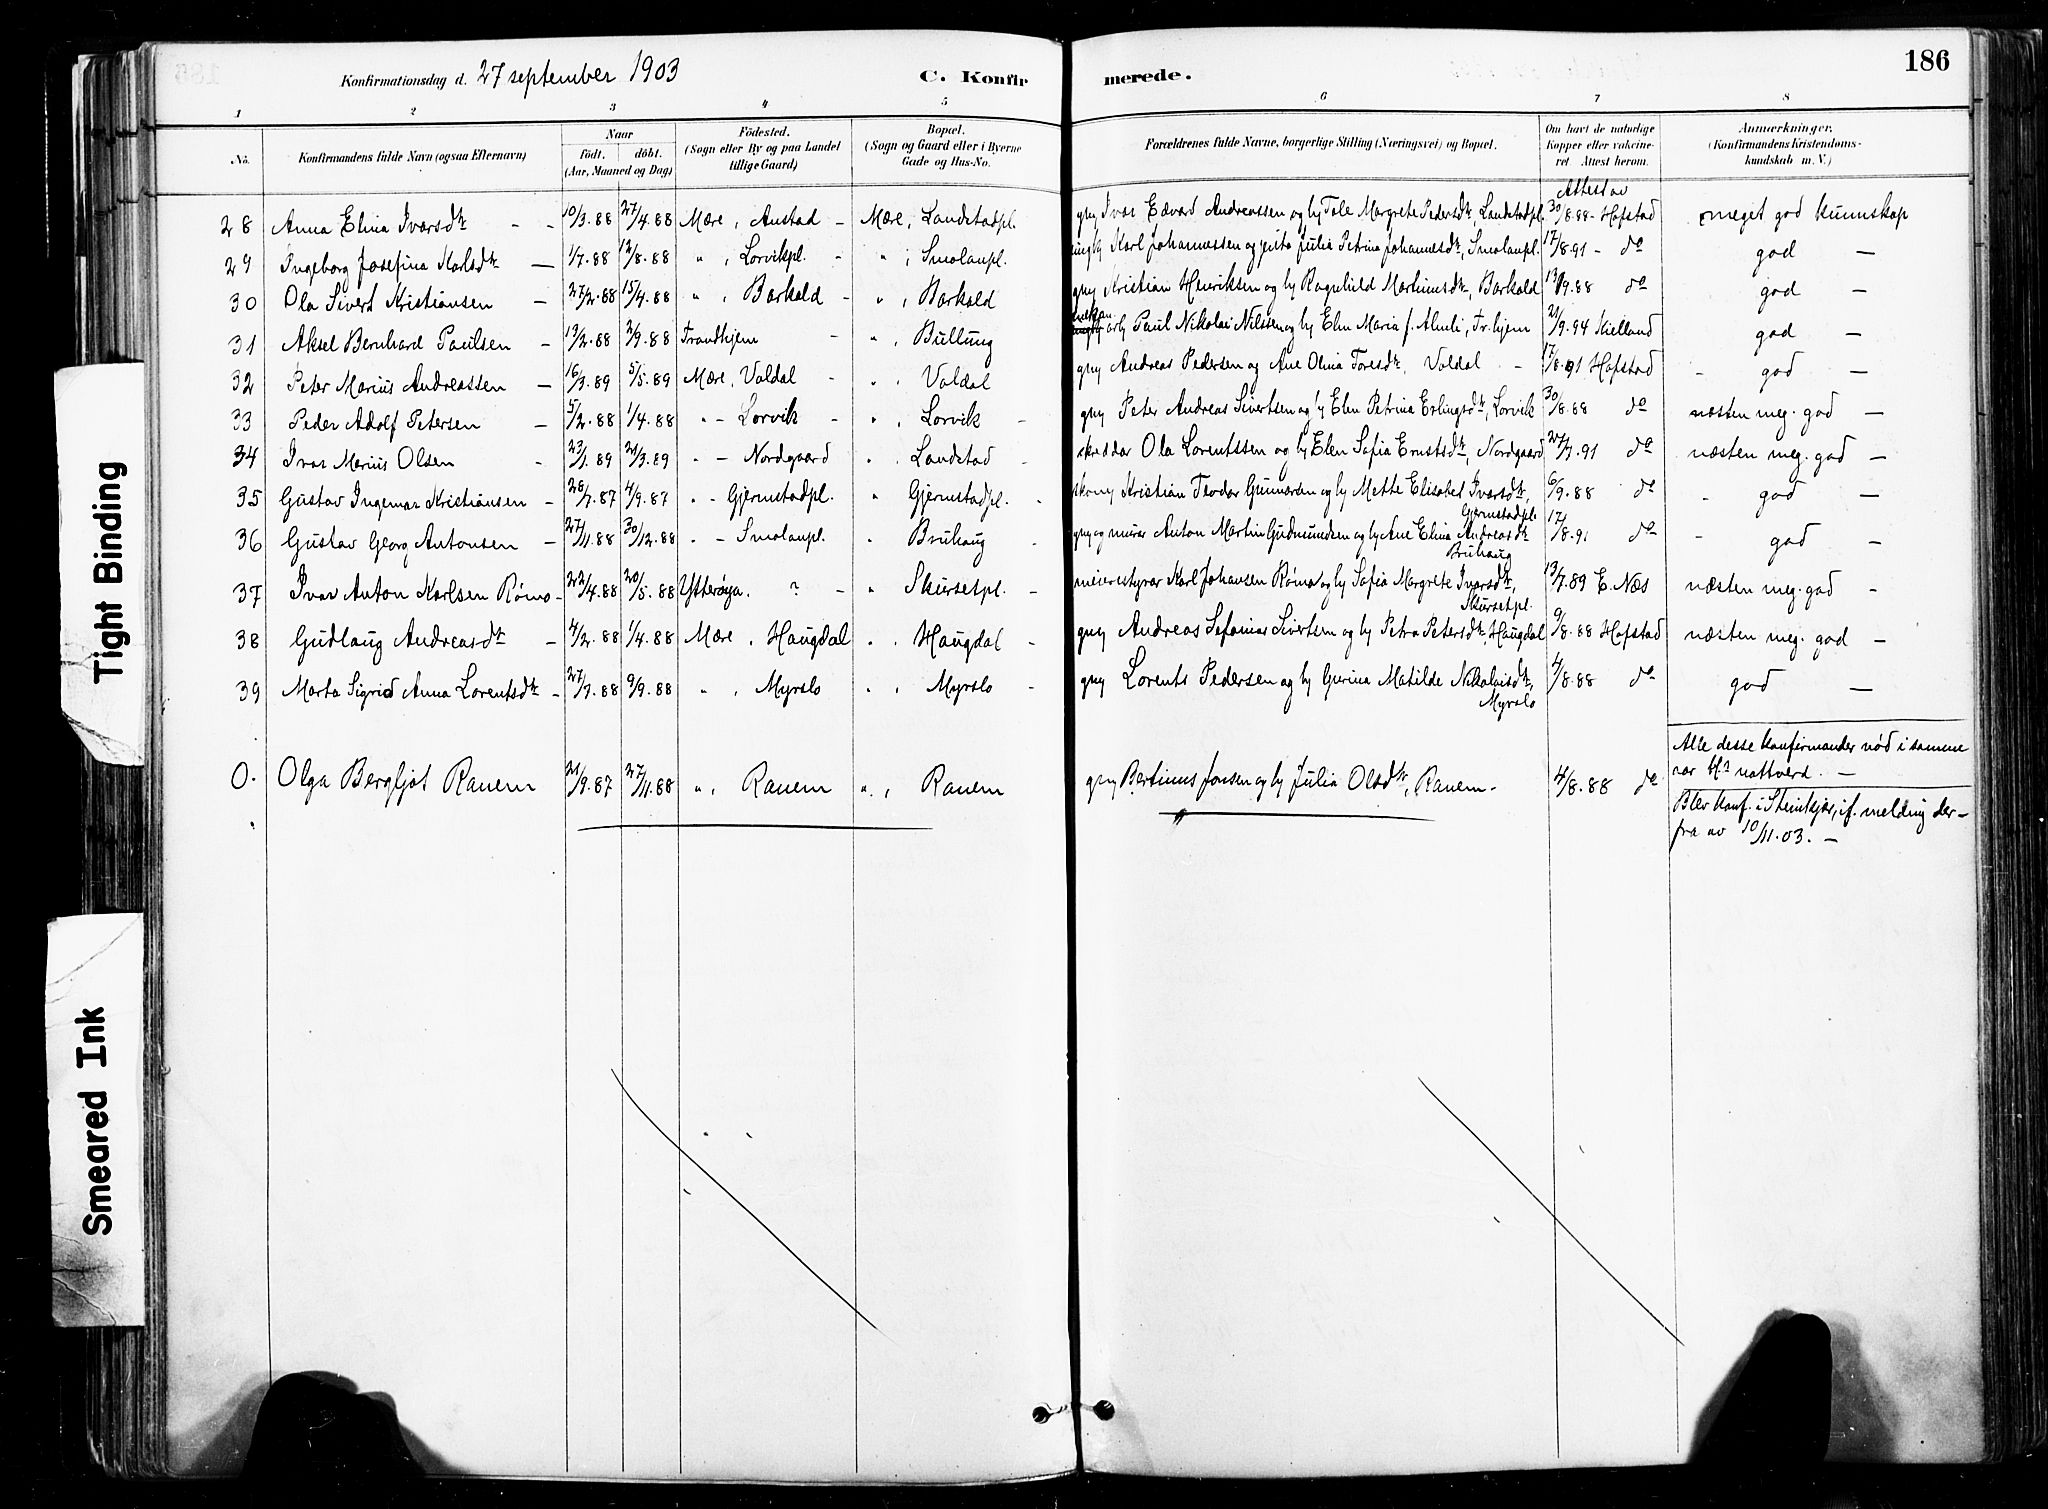 186
Konfirmationsdag d. 27 september 1903 C. Konfirmerede.
1 2 3 4 5 6 7 8
No. Konfirmandens fulde Navn (ogsaa Efternavn) Naar födt. döbt. (Aar, Maaned og Dag) Födested. (Sogn eller By og paa Landet tillige Gaard) Bopæl. (Sogn og Gaard eller i Byerne Gade og Hus-No. Forældrenes fulde Navne, borgerlige Stilling (Næringsvei) og Bopæl. Om havt de naturlige Kopper eller vakcineret Attest herom. Anmærkninger. (Konfirmandens Kristendomskundskab m. V.)
Attest av
28 Anna Elina Iversdtr - - 10/3.88 27/4.88 Mære, Austad - Mære, Landstadpl. gmg Ivar Edvard Andreassen og hy Tale Margrete Pedersdtr, Landstadpl. 30/8.88 - Hofstad meget god kunnskap
29 Ingeborg Josefina Karlsdtr — 1/7.88 12/8.88 " , Lorvikpl. - " , Smolanpl. Karl Johannessen og pike Julia Petrina Johannesdtr, Smolanpl. 17/8.91 - do god —
30 Ola Sivert Kristiansen — 27/2.88 15/4.88 " , Barkald - " , Barkald gmg Kristian Henriksen og hy Ragnhild Marhinusdtr, Barkald 13/9.88 do god —
31 Aksel Bernhard Paulsen — 13/2.88 2/9.88 Trondhjem - " , Bullung arb Paul Nikolai Nilssen og hy Elen Maria f. Almli, Tr.hjem 21/9.94 Kielland god —
32 Peter Marius Andreassen — 16/3.89 5/5.89 Mære, Valdal - " . Valdal gmg Andreas Pedersen og Ane Olina Toresdtr, Valdal - 17/8.91 Hofstad - god —
33 Peder Adolf Petersen — 5/2.88 1/4.88 " - Lorvik - " . Lorvik - gmg Peter Andreas Sivertsen og hy Elen Petrina Erlingsdtr, Lorvik 30/8.88 do næsten meg. god —
34 Ivar Marius Olsen - 23/1.89 21/3.89 " - Nordgaard " . Landstad - skrædder Ola Lorentssen og hy Elen Sofia Ernstsdtr, Nordgaard 27/7.91 do næsten meg. god —
35 Gustav Ingemar Kristiansen - 28/7.87 4/9.87 " - Gjermstadpl. " Gjermstadpl. - skomg Kristian Teodor Gunnarsen og hy Mette Elisabet Ivarsdtr, 6/9.88 do - god —
Gjermstadpl.
36 Gustav Georg Antonsen — 27/11.88 30/12.88 " - Smolanpl. " Bruhaug - gmg og murar Anton Martin Gudmundsen og hy Ane Elina Andreasdtr 17/8.91 do - god —
Bruhaug
37 Ivar Anton Karlsen Rømo - 22/4.88 20/5.88 Ytterøya. ? - " Skjersetpl. - meieristyrar Karl Johansen Rømo og hy Sofia Margrete Ivarsdtr, 13/7.89 E. Næs næsten meg. god -
Skjersetpl.
38 Gudlaug Andreasdtr — 4/2.88 1/4.88 Mære , Haugdal " . Haugdal - gmg Andreas Sefanias Sivertsen og hy Petra Petersdtr, Haugdal 9/8.88 Hofstad næsten meg. god —
39 Marta Sigrid Anna Lorentsdtr - 27/7.88 9/9.88 " , Myrslo " , Myrslo - gmg Lorents Pedersen og hy Gurina Matilde Nikolaisdtr, 4/8.88 do god —
Myrslo
Alle desse konfirmander nød i samme
aar H: nattverd. —
0. Olga Bergljot Ranem 21/9.87 27/11.88 " , Ranem " , Ranem gmg Bertinus Jonsen og hy Julia Olsdtr, Ranem - 4/8.88 do
Blev konf. i Steinkjer, if. melding der-
fra av 10/11.03. —
Tight Binding
Smeared Ink